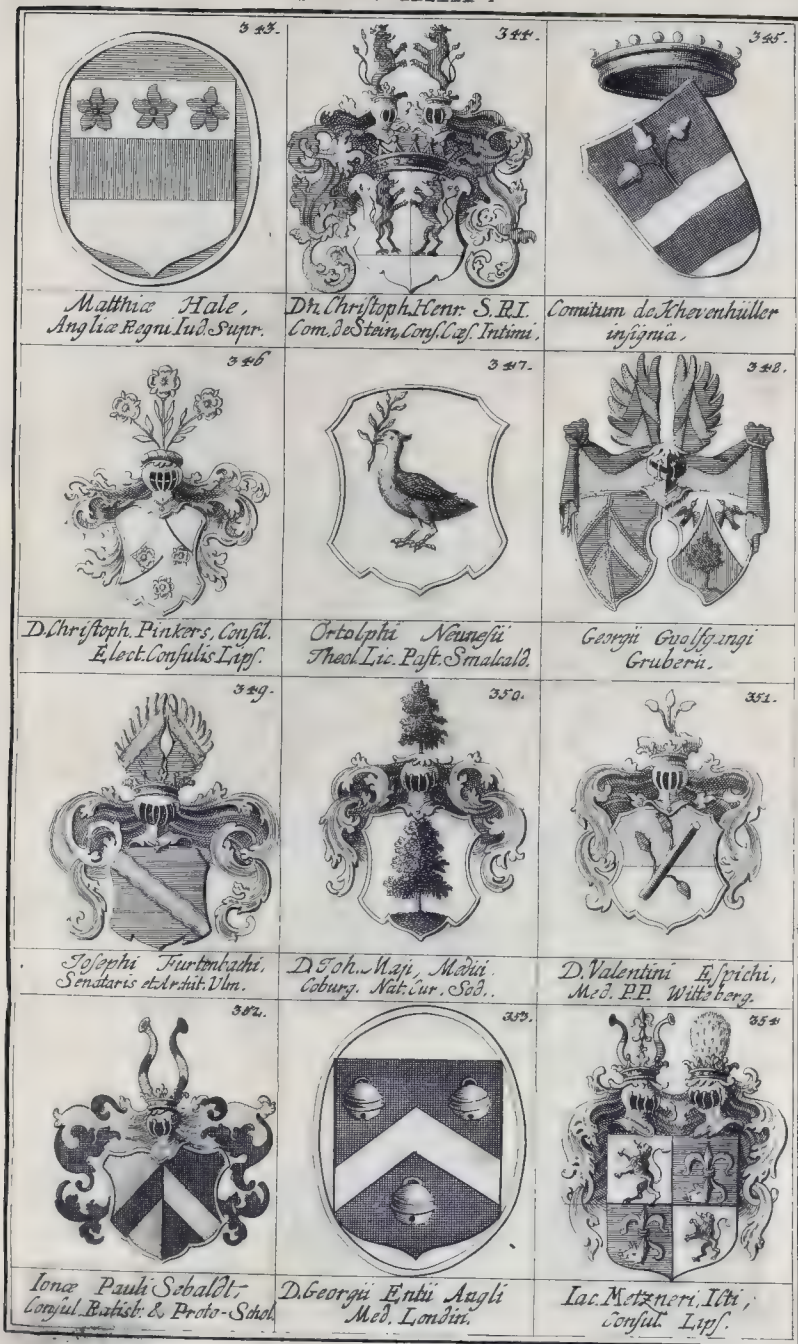 343.
Matthiæ Hale,
Angliæ Regni Iud. Supr.
344.
Dn. Christoph. Henr. S.R.I.
Com. de Stein, Cons. Cæs. Intimi.
345.
Comitum de Khevenhüller
insignia.
346
D. Christoph. Pinkers, Consil.
Elect. Consulis Lips.
347.
Ortolphi
Theol. Lic. Past. Smalcald.
348.
Georgii Guolfgangi
Gruberii.
349.
Josephi Furtenbachi,
Senatoris et Archit. Ulm.
350.
D. Joh. Maji, Medici
Coburg. Nat. Cur. Sod.
351.
D. Valentini Espichi,
Med. P.P. Witteberg.
352.
Ionæ Pauli Sebaldt,
Consul. Ratisb. & Proto-Schol.
353.
D. Georgii Entii Angli
Med. Londin.
354
Iac. Metzneri, Icti,
Consul. Lips.